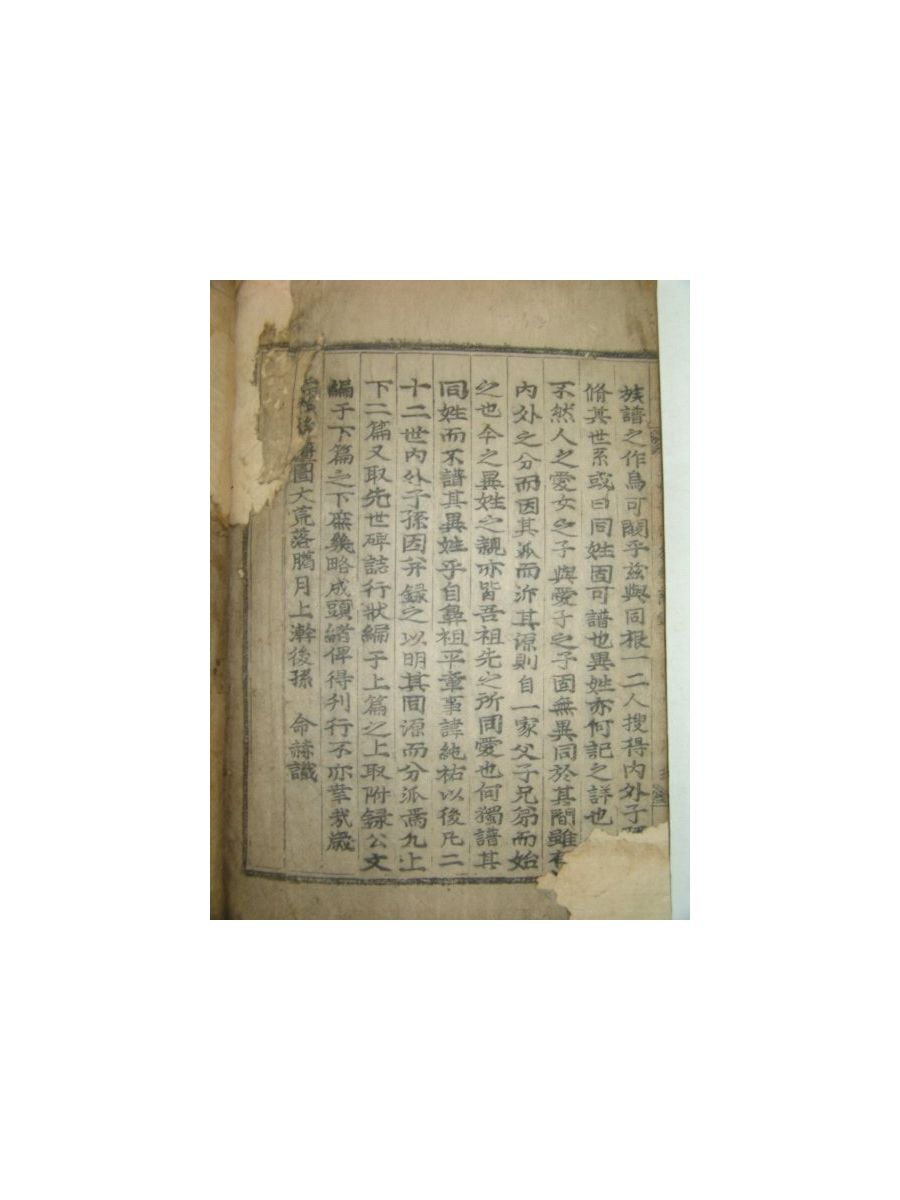 族譜之作烏可闕乎玆與同根一二人搜得内外子
脩其世系或曰同姓固可譜也異姓亦何記之詳也
不然人之愛女之子與愛子之子固無異同於其間雖
内外之分而因其派而泝其源則自一家父子兄弟而始
之也今之異姓之親亦皆吾祖先之所同愛也何獨譜其
同姓而不譜其異姓乎自鼻祖平章事諱純祐以後凡二
十二世内外子孫因并錄之以明其同源而分派焉九上
下二篇又取先世碑誌行狀編于上篇之上取附録公文
編于下篇之下庶幾略成頭緒俾得刊行不亦幸哉歲
後 圍大荒落臈月上澣後孫 命赫識